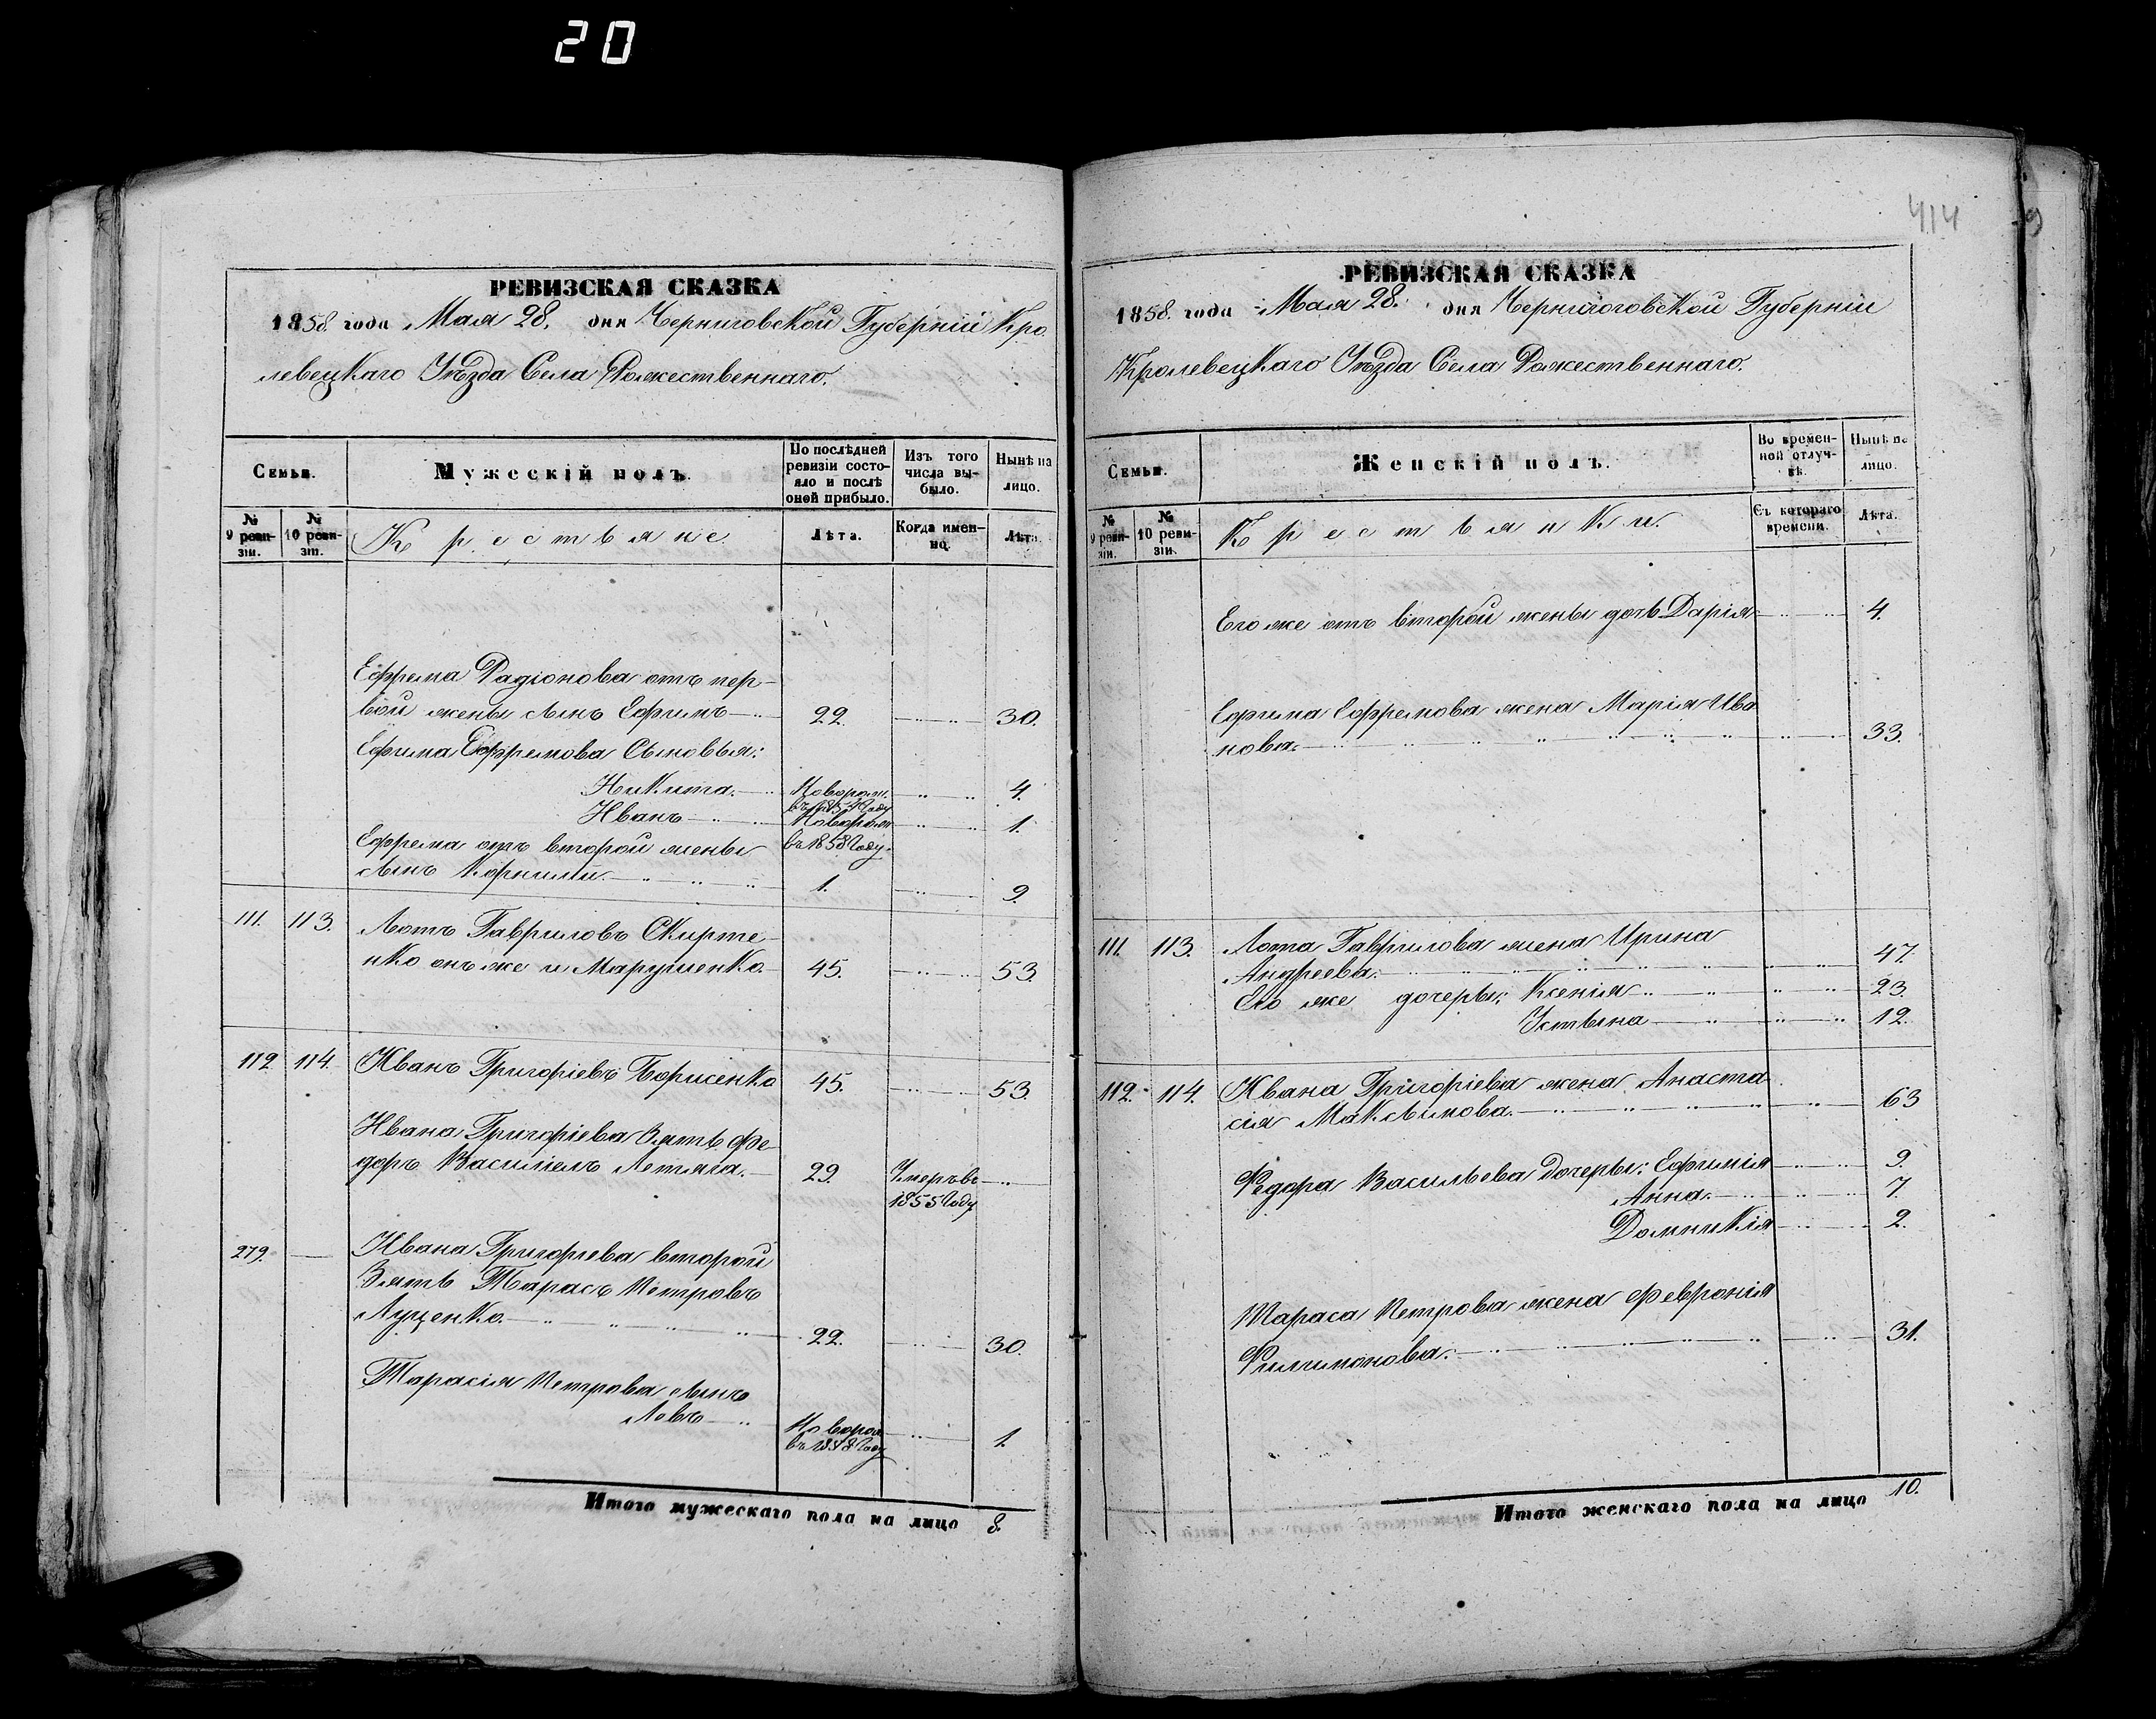 20
РЕВИЗСКАЯ СКАЗКА
1858. года Мая 28. дня Черниговской Губерніи Кро
левецкаго Уѣзда Села Рожественнаго.
Семьи.
Мужескій полъ.
По послѣдней
ревизіи состо-
яло и послѣ
оной прибыло.
Изъ того
числа вы-
было.
Нынѣ на
лицо.
№
9 реви-
зіи.
№
10 реви-
зіи.
Крестьяне.
Лѣта.
Когда имен-
но.
Лѣта.
Ефрема Радіонова отъ пер-
вой жены сынъ Ефимъ 22. 30.
Ефима Ефремова Сыновья:
Никита. Новорож. 4.
въ 1854 Году
Иванъ Новорож 1.
Ефрема отъ второй жены въ 1858 Году.
сынъ Корнилій. 1. 9.
111. 113. Лотъ Гавриловъ Скирте-
нко онъ же и Марушенко. 45. 53.
112 114. Иванъ Григоріевъ Борисенко 45. 53.
Ивана Григоріева Зять Фе-
доръ Василіевъ Летяга. 29. Умеръ въ
1855 Году
279. Ивана Григоріева второй
Зять Тарасъ Петровъ
Луценко. 22. 30.
Тарасія Петрова сынъ
Левъ Новорож 1.
въ 1858 Году
Итого мужескаго пола на лицо 8.
414
РЕВИЗСКАЯ СКАЗКА
1858. года Мая 28. дня Чернигоговской Губерніи
Кролевецкаго Уѣзда Села Рожественнаго.
Семьи.
Женскій полъ.
Во времен-
ной отлуч-
кѣ.
Нынѣ на
лицо.
№
9 реви-
зіи.
№
10 реви-
зіи.
Крестьянки.
Съ котораго
времени.
Лѣта.
Его же отъ второй жены дочь Дарія 4.
Ефима Ефремова жена Марія Ива
нова. 33.
111. 113. Лота Гаврилова жена Ирина
Андреева. 47.
Его же дочери: Ксенія 23.
Устьина 12.
112. 114. Ивана Григоріева жена Анаста
сія Максимова. 63
Федора Васильева Дочери: Ефимія 9.
Анна. 7.
Домникія 2.
Тараса Петрова жена Февронія
Филимонова. 31.
Итого женскаго пола на лицо 10.